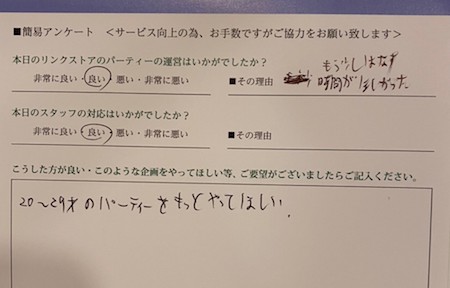 ■簡易アンケート ＜サービス向上の為、お手数ですがご協力をお願い致します＞
本日のリンクストアのパーティーの運営はいかがでしたか？
非常に良い・良い・悪い・非常に悪い
■その理由
もう少しはなす
時間がほしかった
本日のスタッフの対応はいかがでしたか？
非常に良い・良い・悪い・非常に悪い
■その理由
こうした方が良い・このような企画をやってほしい等、ご要望がございましたらご記入ください。
20〜29才のパーティーをもっとやってほしい.